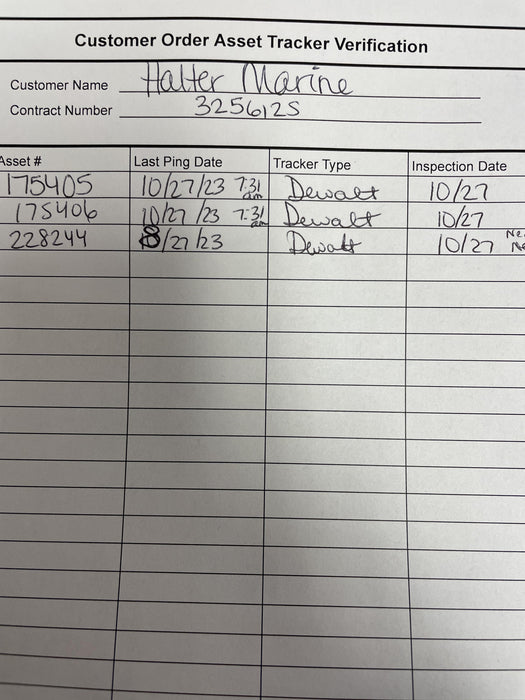 Customer Order Asset Tracker Verification
Customer Name Halter Marine
Contract Number 3256125
Asset # Last Ping Date Tracker Type Inspection Date
175405 10/27/23 7:31 am Dewalt 10/27
175406 10/27/23 7:31 am Dewalt 10/27
228244 8/27/23 Dewalt 10/27